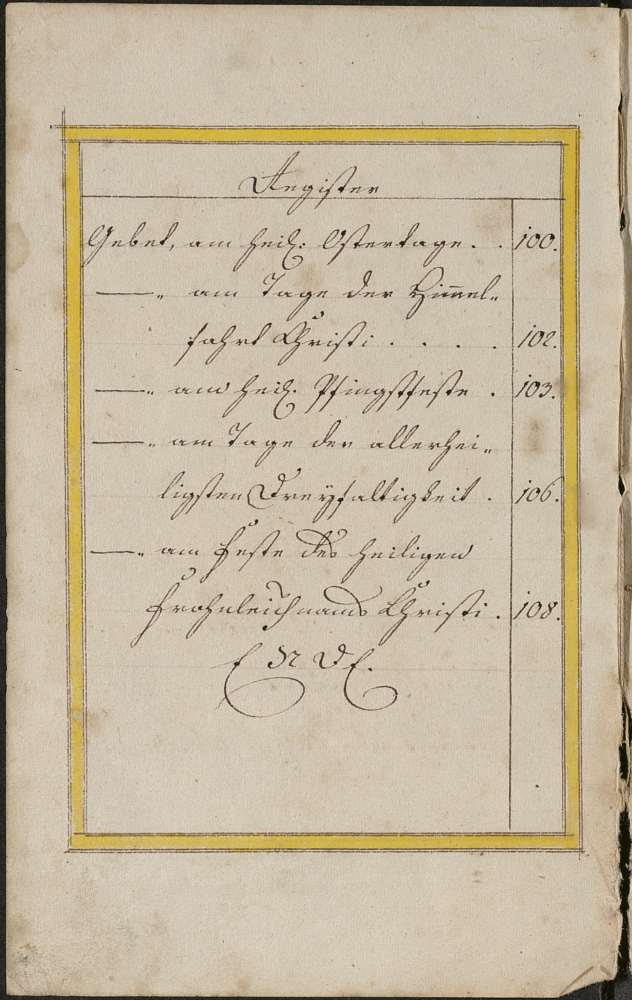 Register
Gebet, am heil: Ostertage. . 100.
—„ am Tage der Him̄el„
fahrt Christi . . . . 102.
—„ am heil. Pfingstfeste . 103.
—„ am Tage der allerhei„
ligsten Dreyfaltigkeit . 106.
—„ am Feste des heiligen
Frohnleichnams Christi . 108.
E N D E.